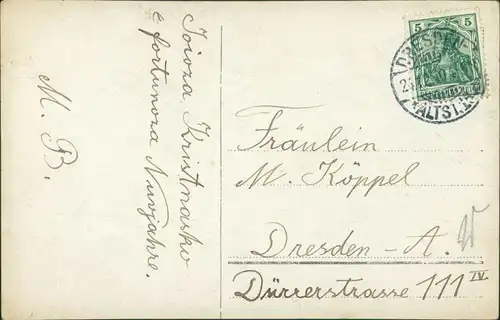 Ioioza Kristnasko
e fortunoza Nuvjahre.
M. B.
5 5
DRESDEN
ALTST.
Fräulein
M. Köppel
Dresden-A.
Dürrerstrasse 111 IV.